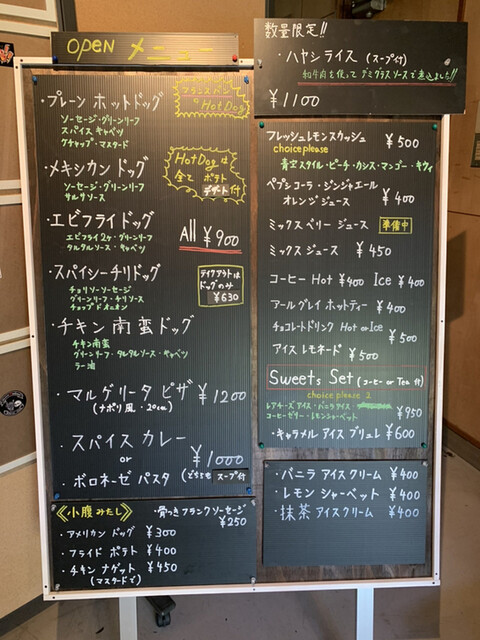 OPEN メニュー
・プレーン ホットドッグ
ソーセージ・グリーンリーフ
スパイス キャベツ
ケチャップ・マスタード
フランスパン
HotDog
・メキシカン ドッグ
ソーセージ・グリーンリーフ
サルサソース
HotDogは
全て ポテト
デザート付
・エビフライ ドッグ
エビフライ2ケ・グリーンリーフ
タルタルソース・キャベツ
All ¥900
・スパイシーチリドッグ
チョリソーソーセージ
グリーンリーフ・チリソース
チョップドオニオン
テイクアウトは
ドッグのみ
¥630
・チキン南蛮ドッグ
チキン南蛮
グリーンリーフ・タルタルソース・キャベツ
ラー油
・マルゲリータ ピザ ¥1200
(ナポリ風・20cm)
・スパイス カレー
or ¥1000
・ボロネーゼ パスタ (どちらも スープ付)
《小腹みたし》 ・骨つきフランクソーセージ
¥250
・アメリカン ドッグ ¥300
・フライド ポテト ¥400
・チキン ナゲット ¥450
(マスタードで)
数量限定!!
・ハヤシライス (スープ付)
和牛肉を使って デミグラスソースで煮込みました!!
¥1100
フレッシュレモンスカッシュ ¥500
choice please
青空スタイル・ピーチ・カシス・マンゴー・キウィ
ペプシコーラ・ジンジャエール
オレンジ ジュース ¥400
ミックスベリー ジュース 準備中
ミックスジュース ¥450
コーヒー Hot ¥400 Ice ¥400
アールグレイ ホットティー ¥400
チョコレートドリンク Hot or Ice ¥500
アイス レモネード ¥500
Sweets Set (コーヒー or Tea 付)
choice please 2
レアチーズアイス・バニラアイス
コーヒーゼリー・レモンシャーベット ¥950
・キャラメル アイス ブリュレ ¥600
・バニラ アイスクリーム ¥400
・レモン シャーベット ¥400
・抹茶 アイスクリーム ¥400